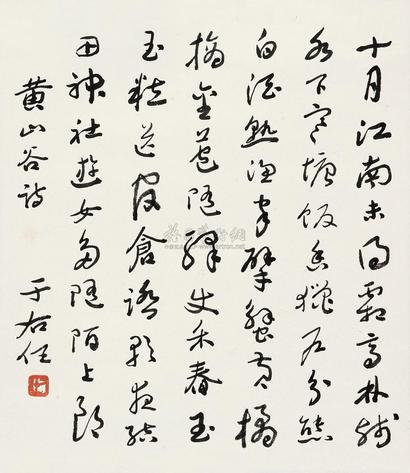 十月江南未得霜高林殘
水下寒塘飯香獵戶分熊
白酒熟漁家擘蟹黃橘
摘金苞隨驛使禾舂玉
玉粒送官倉踏歌夜結
田神社遊女多隨陌上郎
黃山谷詩
于右任